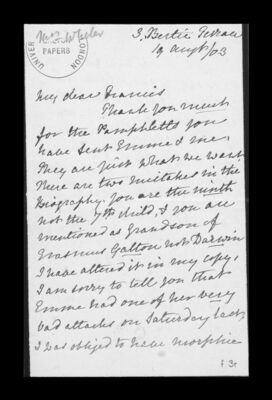 3, Bertie Terrace
19 Augt/03
UNIVER
PAPERS
LONDON
My dear Francis
Thank you much
for the Pamphletts you
have sent Emme & me.
They are just what we want
There are two mistakes in the
biography. You are the ninth
not the 7th child, & you are
mentioned as Grandson of
Erasmus Galton not Darwin
I have altered it in my copy,
I am sorry to tell you that
Emme had one of her very
bad attacks on Saturday last
I was obliged to have morphia
f. 3r